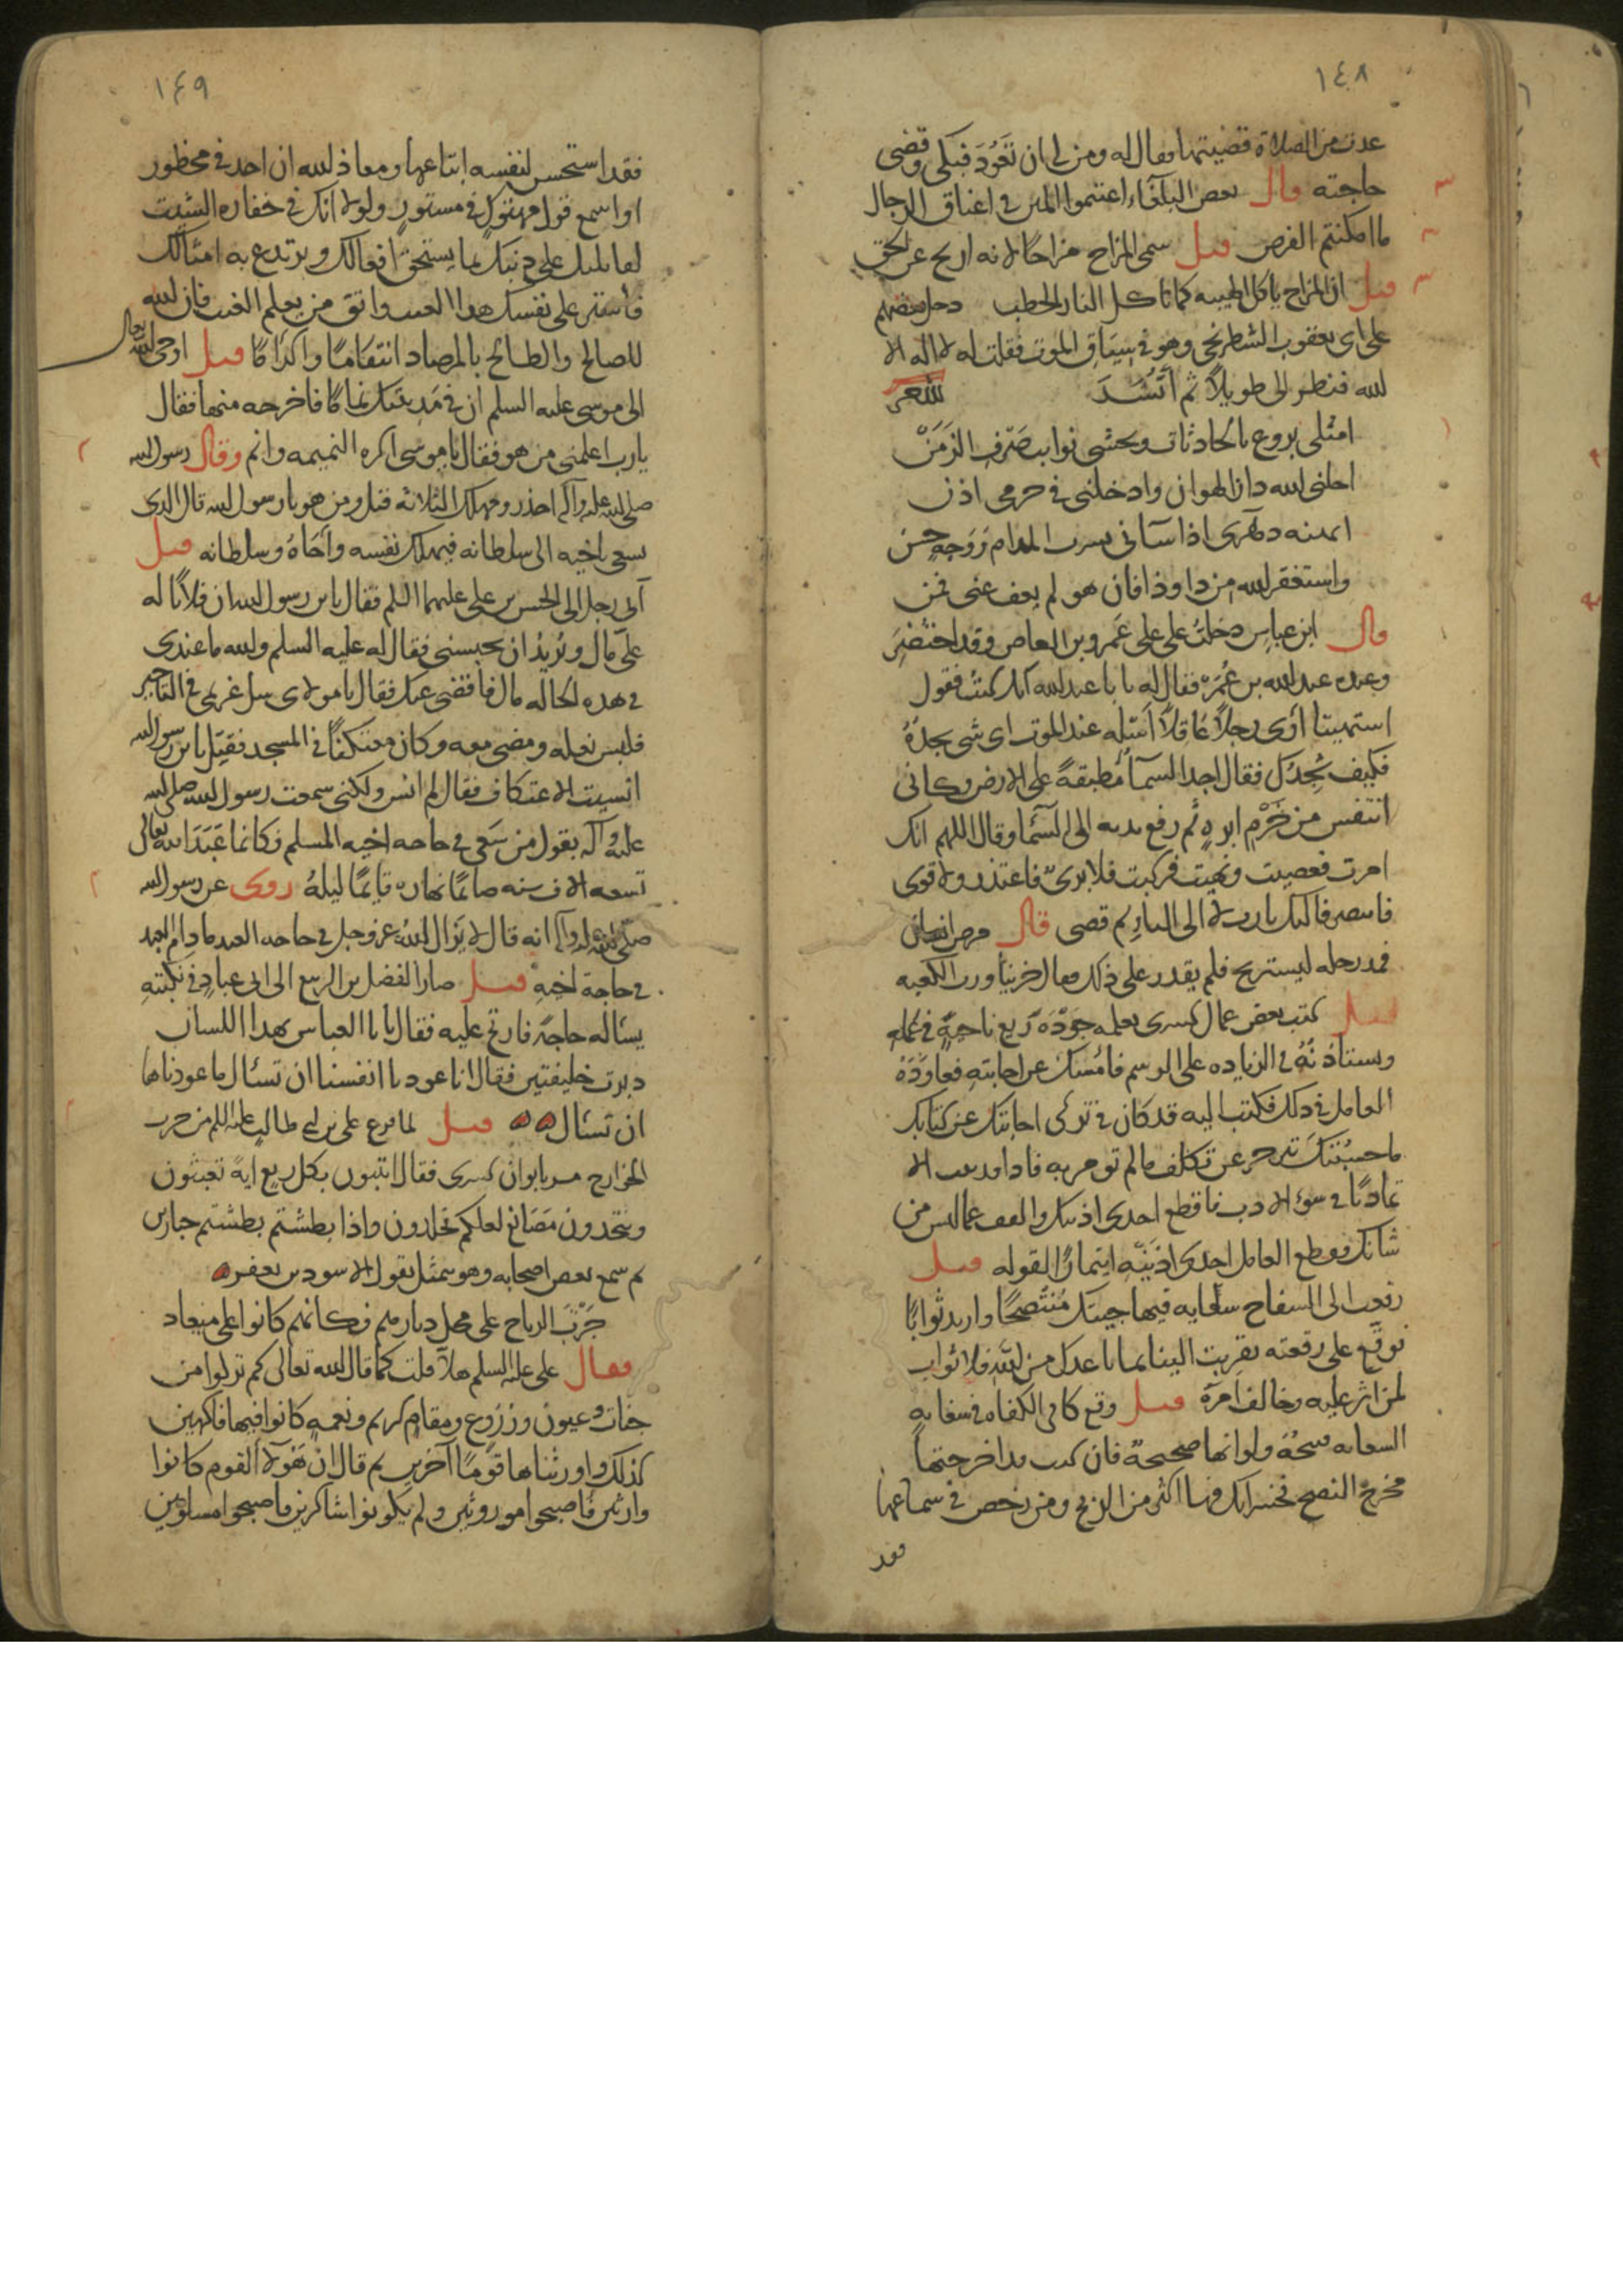 ١٤٨
عدت من الصلاة قضيتها فقال له ومن لي ان تعود فبكى وقضى
حاجته قال بعض البلغاء اغتنموا المنن في اعناق الرجال
ما امكنتم الفرص قيل سمى المزاح مزاحا لانه ازيح عن الحق
قيل ان المزاح ياكل الهيبه كما تاكل النار الحطب دخل بعضهم
على ابى يعقوب الشطرنجي وهو في سياق الموت فقلت له لا اله الا
الله فنظر الى طويلا ثم انشد الشعر
امثلى يروع بالحادثات ويخشى نوايب صرف الزمن
احلنى الله دار الهوان وادخلنى في حرمى اذن
اذا سآنى بشرب المدام ووجه حسن
واستغفر الله من ذا وذا فان هو لم يعف عنى فمن
قال ابن عباس دخلت على على عمرو بن العاص وقد احتضر
وعنده عبد الله بن عمره فقال له يا با عبد الله انك كنت تقول
اشتهيت ان ارى رجلا عاقلا اسئله عند الموت اى شى يجده
فكيف تجدك فقال اجد السمآ مطبقة على الارض وكانى
اتنفس من خرم ابره ثم رفع يديه الى السمآ وقال اللهم انك
امرت فعصيت ونهيت فركبت فلا برى فاعتذر ولا قوى
فانتصر فالیک يا رب لا الى النار ثم قضى قال مرض
فمد رجله ليستريح فلم يقدر على ذلك فقال خزينا ورب الكعبه
قيل كتب بعض عمال كسرى يعلمه جودة ريع ناحية في عمله
ويستاذنه في الزياده على الرسم فامسك عن اجابته فعاوده
العامل في ذلك فكتب اليه قد كان في تركى اجابتك عن كتابك
ما حسبتك تنزجر عن تكلف ما لم تومر به فاذا قد ابيت الا
تماديا في سوء الادب فاقطع احدى اذنيك واكفف عما ليس من
شانك فقطع العامل احدى اذنيه ايتمارا لقوله قيل
رفعت الى السفاح سعايه فيها جيتك منتصحا واريد ثوابا
فوقع على رقعته تقربت الينا بما باعدك من الله فلا ثواب
لمن اثر عليه وخالف امره قيل وقع كافى الكفاه في سعايه
السعايه قبيحة ولو انها صحيحة فان كنت قد اخرجتها
مخرج النصح فخسرانك فيها اكثر من الربح ومن رخص في سماعها
فقد
١٤٩
فقد استحسن لنفسه اتباعها ومعاذ الله ان اخذ في محظور
او اسمع قول مهتوك في مستور ولولا انك في خفاره الشيب
لقابلتك على ذنبك بما يستحق افعالك ويرتدع به امثالك
فاستر على نفسك هذا العيب واتق من يعلم الغيب فان الله
للصالح والطالح بالمرصاد انتقاما واكراما قيل اوحى الله تعالى
الى موسى عليه السلم ان في مدينتك نماما فاخرجه منها فقال
يارب اعلمنى من هو فقال ياموسى اكره النميمه وانم وقال رسول الله
صلى الله عليه وآله احذروا مهلك الثلاثه قيل ومن هو يا رسول الله قال الذى
يسعى باخيه الى سلطانه فيهلك نفسه واخاه وسلطانه قيل
آتى رجل الى الحسن بن على عليهما السلم فقال يابن رسول الله ان فلانا له
على مال ويريد ان يحبسنى فقال له عليه السلم والله ما عندى
في هذه الحاله مال فاقضى عنك فقال يا مولاى سل غريمى في التاخير
فلبس نعله ومضى معه وكان معتكفا في المسجد فقيل يابن رسول الله
انسيت الاعتكاف فقال لم انس ولكنى سمعت رسول الله صلى الله
عليه وآله يقول من سعى في حاجه اخيه المسلم فكانما عبد الله تعالى
تسعه الاف سنه صائما نهاره قائما ليله روى عن رسول الله
صلى الله عليه وآله انه قال لا يزال الله عز وجل في حاجه العبد ما دام العبد
في حاجة اخيه قيل صار الفضل بن الربيع الى ابى عباد في نكبته
يساله حاجة فارتج عليه فقال يا با العباس بهذا اللسان
دبرت خليفتين فقال انا عودنا انفسنا ان نسئال ما عودناها
ان نسئال قيل لما فرغ على بن ابى طالب عليه السلم من حرب
الخوارج مر بايوان كسرى فقال اتبنون بكل ريع اية تعبثون
وتتخذون مصانع لعلكم تخلدون واذا بطشتم بطشتم جبارين
ثم سمع بعض اصحابه وهو يتمثل بقول الاسود بن يعفر
جرت الرياح على محل ديارهم فكانهم كانوا على ميعاد
فقال على عليه السلم هلا قلت كما قال الله تعالى كم تركوا من
جنات وعيون وزروع ومقام كريم ونعمه كانوا فيها فاكهين
كذلك واورثناها قوما آخرين ثم قال ان هؤلآ القوم كانوا
وارثين فاصبحوا موروثين ولم يكونوا شاكرين فاصبحوا مسلوبين